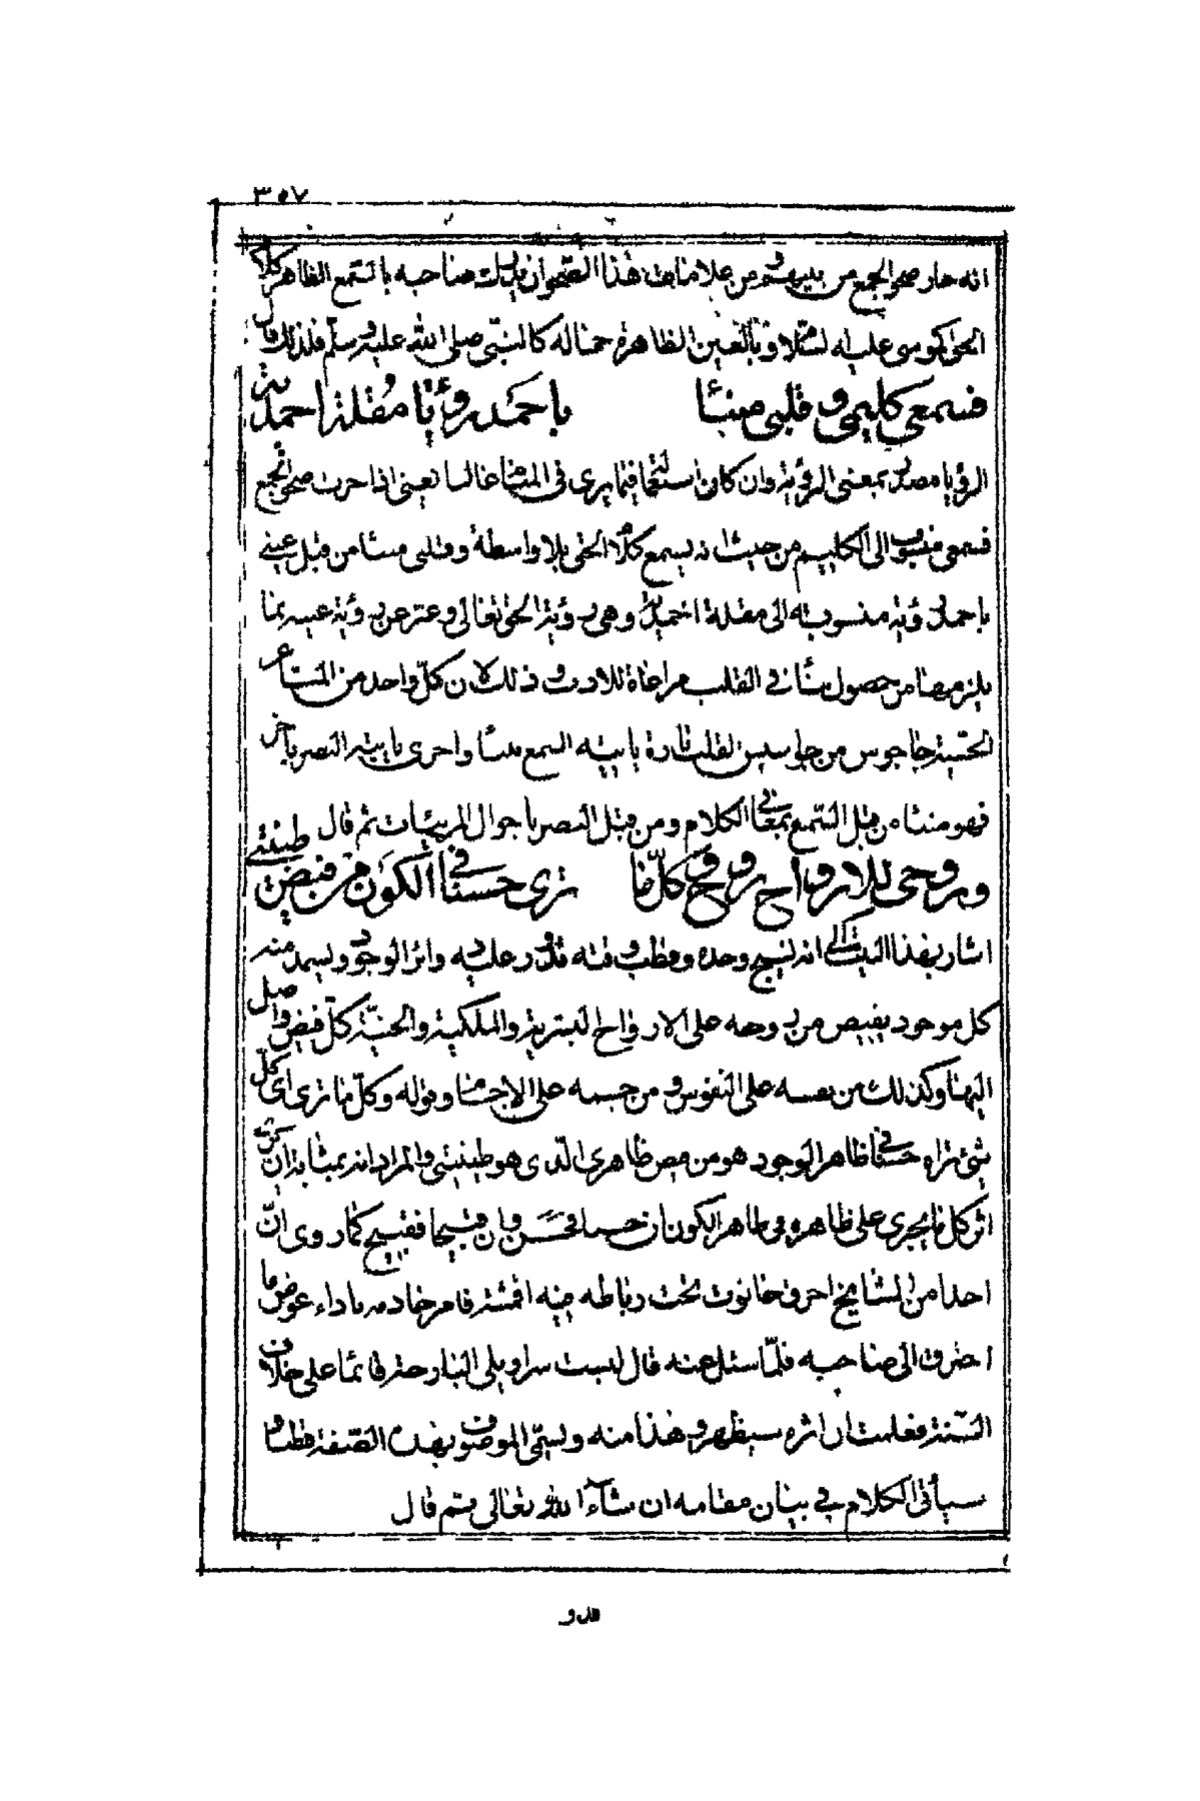 ٣٥٧
انه حاز صحو الجمع من بينهم ومن علامات هذا الصحو ان يلتذ صاحبه بالسمع الظاهر كلام
الحق كموسى عليه السلام او بالعين الظاهرة جماله كالنبي صلى الله عليه وسلم فلذلك قال
فسمعي كليمي وقلبي منبئا باحمد رؤيا مقلة احمدية
الرؤيا مصدر بمعنى الرؤية وان كان استعمالها فيما يرى في المنام غالبا يعني اذا حزت صحو الجمع
فسمعي منسوب الى الكليم من حيث انه يسمع كلام الحق بلا واسطة وقلبي منبئا من قبل عيني
باحمد رؤية منسوبة الى مقلة احمدية وهي رؤية الحق تعالى وعبر عن رؤية عينه بما
يلزمها من حصول نبأ في القلب مراعاة للادب وذلك لان كل واحد من المشاعر
الحسية جاسوس من جواسيس القلب تارة يأتيه السمع منبئا واخرى يأتيه البصر بآخر
فهو منبئا من قبل السمع بمعاني الكلام ومن قبل البصر باحوال المرئيات ثم قال
وروحي للارواح روح وكل ما ترى حسنا في الكون من فيض طينتي
اشار بهذا البيت الى انه نسيج وحده وقطب وقته تدور عليه دوائر الوجود ويستمد منه
كل موجود يفيض من روحه على الارواح البشرية والملكية والجنية كل فيض واصل
اليها وكذلك من نفسه على النفوس ومن جسمه على الاجسام وقوله وكل ما ترى اي كل
شيء تراه حسنا في ظاهر الوجود هو من فيض ظاهري الذي هو طينتي والمراد انه بمثابة ان
اثر كل ما يجري على ظاهره في ظاهر الكون ان حسنا فحسن وان قبيحا فقبيح كما روى ان
احدا من المشايخ احرق حانوت تحت رباطه فيه اقمشة فامر خادمه باداء عوض ما
احترق الى صاحبه فلما سئل عنه قال لبست سراويلي البارحة قائما على خلاف
السنة فعلمت ان اثره سيظهر وهذا منه ويسمى الموصوف بهذه الصفة قطبا و
سيأتي الكلام في بيان مقامه ان شاء الله تعالى ثم قال